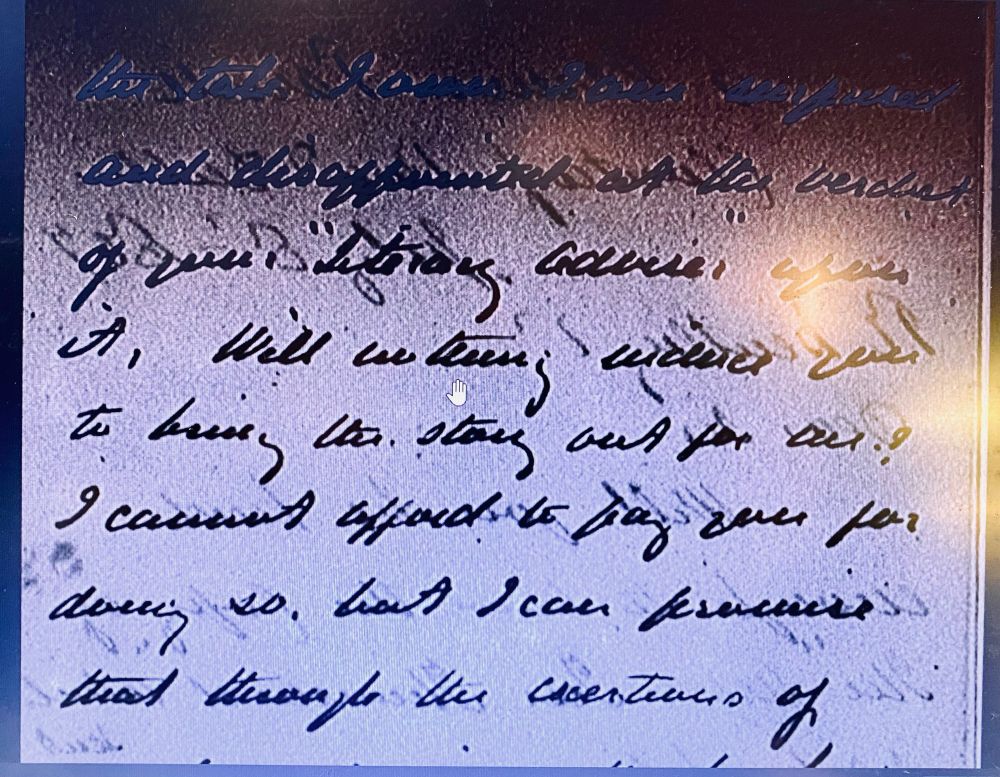 the tale I own I am surprised
and disappointed at the verdict
of your "literary adviser" upon
it. Will nothing induce you
to bring the story out for me?
I cannot afford to pay you for
doing so, but I can promise
that through the exertions of